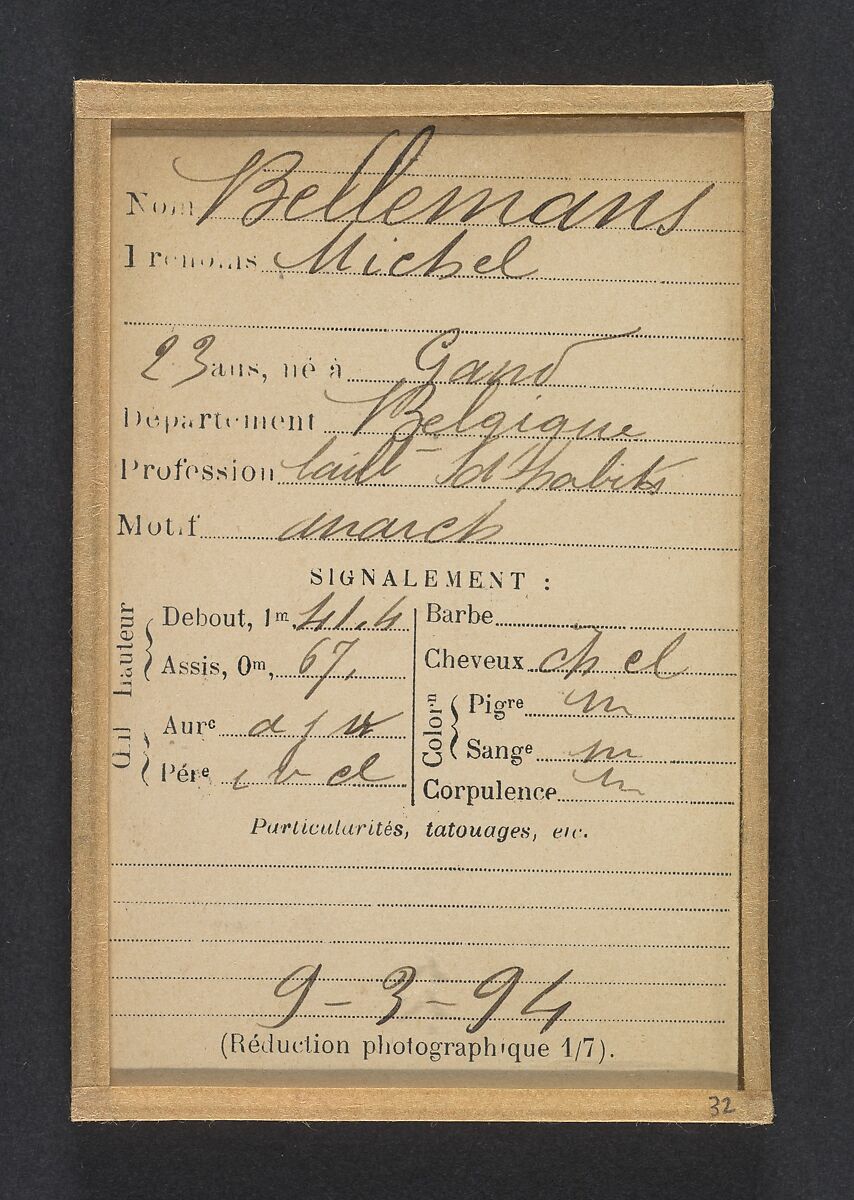 Nom Bellemans
Prénoms Michel
23 ans, né à Gand
Département Belgique
Profession taill^r d'habits
Motif anarch
SIGNALEMENT :
Hauteur
Debout, 1^m, 41.4
Assis, 0^m, 67,
Œil
Aur^e
Pér^e
Barbe
Cheveux ch cl
Color^n
Pig^re m
Sang^e m
Corpulence m
Particularités, tatouages, etc.
9-3-94
(Réduction photographique 1/7).
32